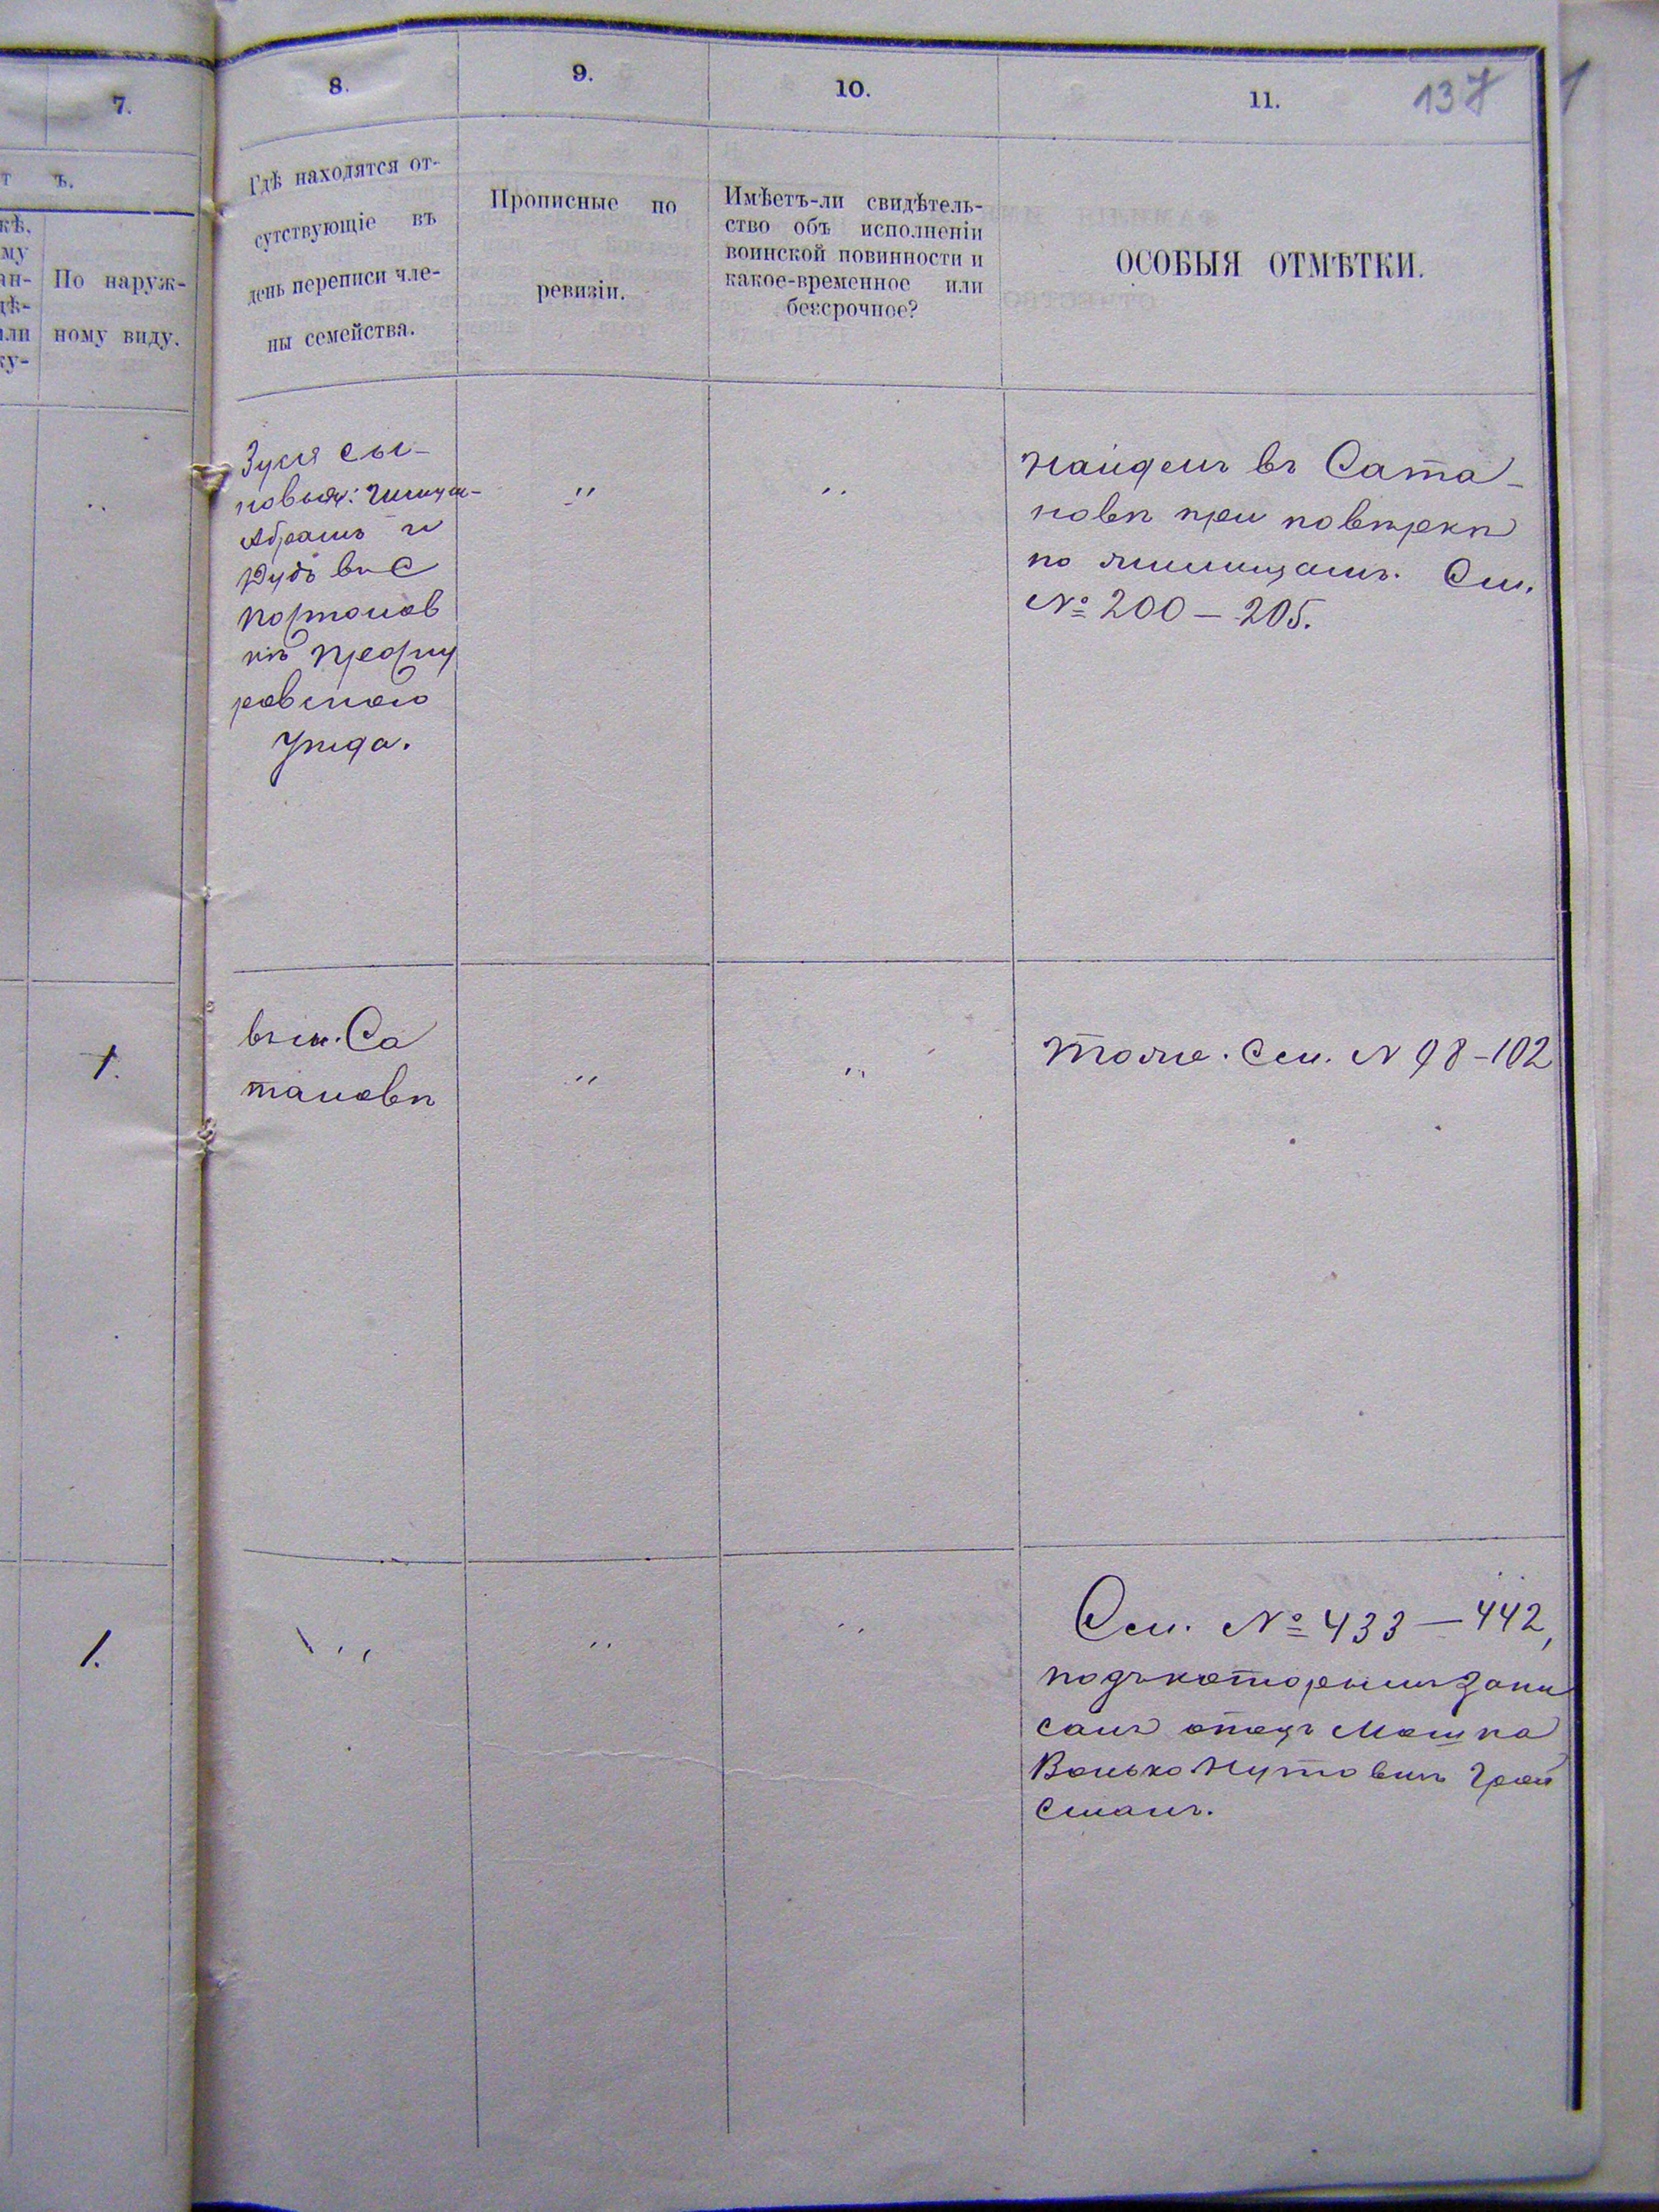 7.
8.
9.
10.
11.
137
т ъ.
кѣ,
му
ан-
дѣ-
или
ку-
По наруж-
ному виду.
Гдѣ находятся от-
сутствующіе въ
день переписи чле-
ны семейства.
Прописные по
ревизіи.
Имѣетъ-ли свидѣтель-
ство объ исполненіи
воинской повинности и
какое-временное или
безсрочное?
ОСОБЫЯ ОТМѢТКИ.
Зуся сы-
новья:
Абрамъ и
въ С
Портонов
кѣ Проску
ровскаго
уѣзда.
"
"
Найденъ въ Сата-
новѣ при повѣркѣ
по лицамъ. См.
№ 200 — 205.
1.
въ м. Са
тановѣ
"
"
Тоже. См. N 98-102
1.
"
"
"
См. № 433 — 442,
подъ которымъ запи
санъ отецъ Мошка
Волько Нутовичъ Грой
сманъ.